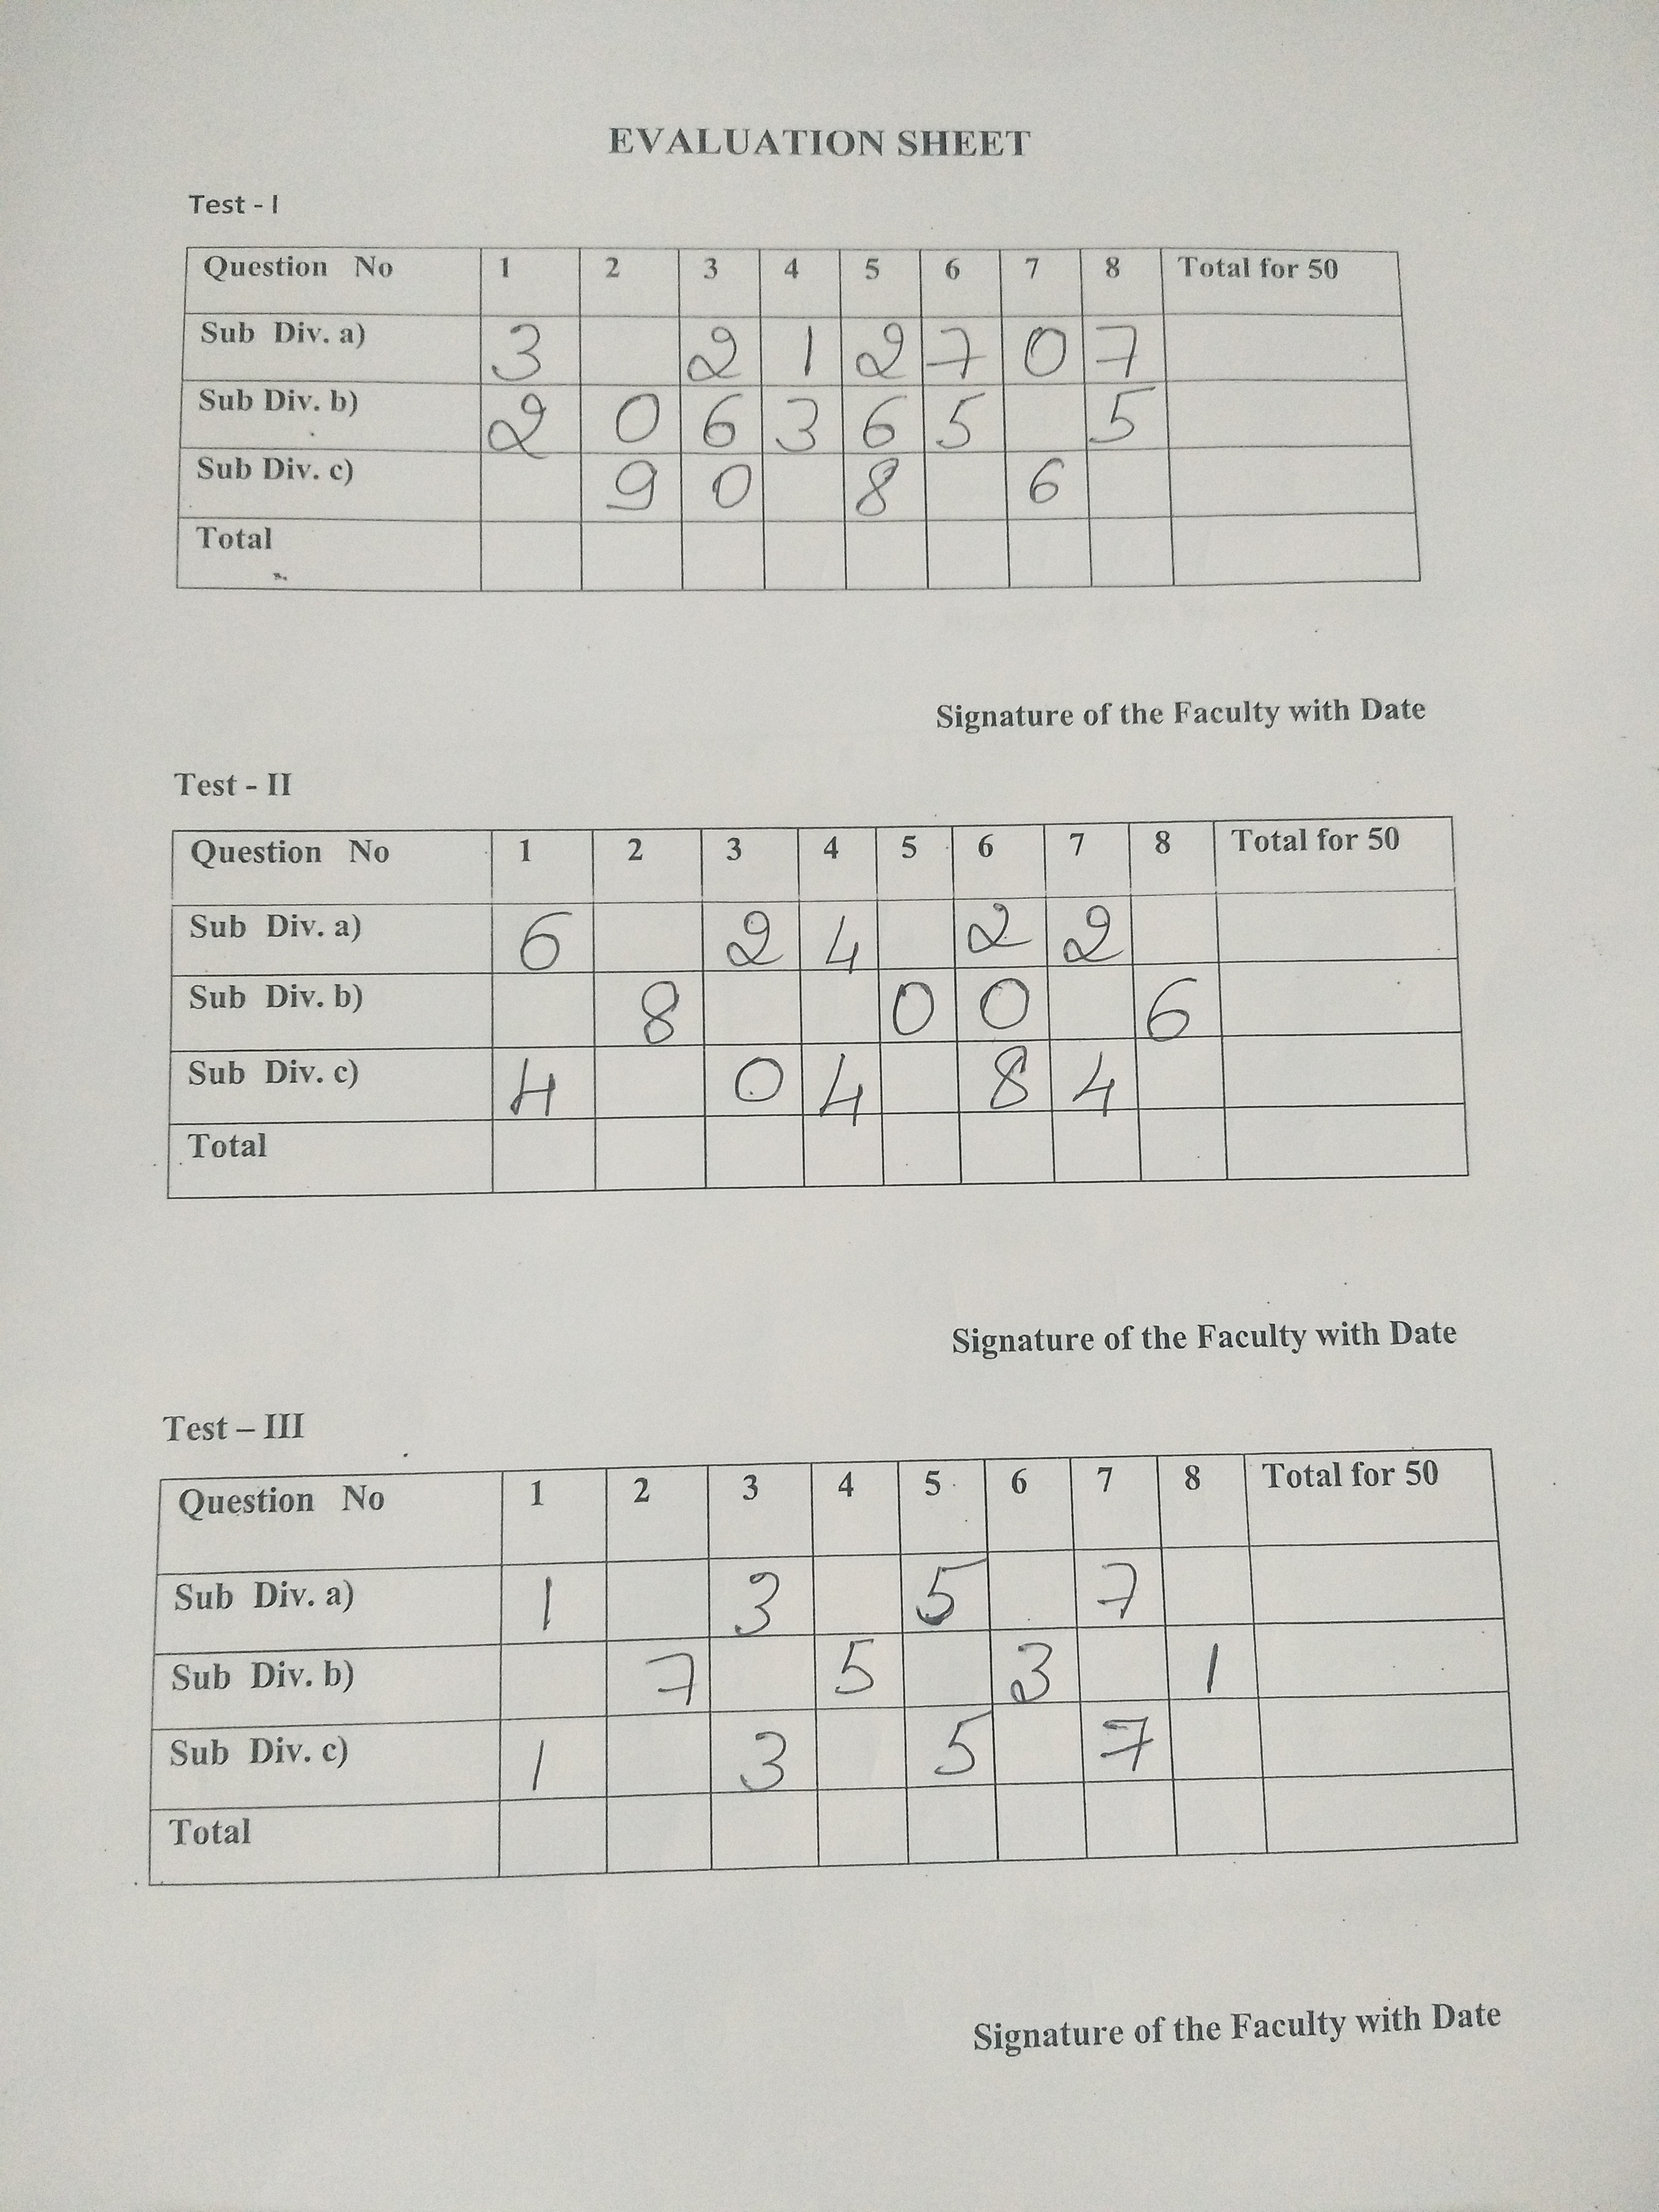 EVALUATION SHEET
Test - I
Question No 1 2 3 4 5 6 7 8 Total for 50
Sub Div. a) 3 2 1 2 7 0 7
Sub Div. b) 2 0 6 3 6 5 5
Sub Div. c) 9 0 8 6
Total
Signature of the Faculty with Date
Test - II
Question No 1 2 3 4 5 6 7 8 Total for 50
Sub Div. a) 6 2 4 2 2
Sub Div. b) 8 0 0 6
Sub Div. c) 4 0 4 8 4
Total
Signature of the Faculty with Date
Test – III
Question No 1 2 3 4 5 6 7 8 Total for 50
Sub Div. a) 1 3 5 7
Sub Div. b) 7 5 3 1
Sub Div. c) 1 3 5 7
Total
Signature of the Faculty with Date